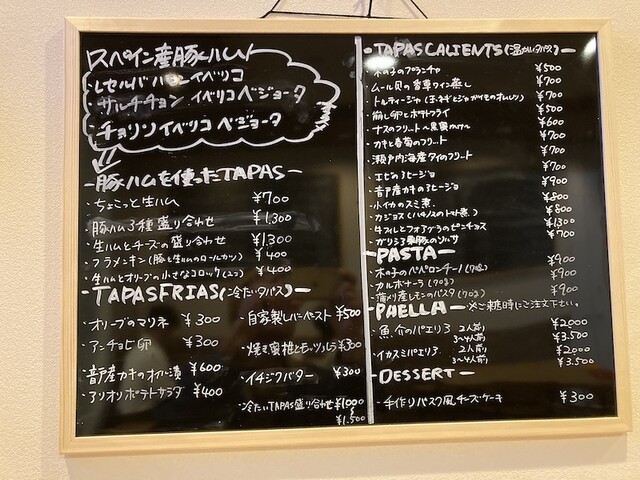 スペイン産豚ハム
・レセルバ ハモン イベリコ
・サルチチョン イベリコ ベジョータ
・チョリソ イベリコ ベジョータ
-豚ハムを使ったTAPAS-
・ちょこっと生ハム ¥700
・豚ハム3種盛り合わせ ¥1,300
・生ハムとチーズの盛り合わせ ¥1,300
・フラメンキン(豚と生ハムのロールカツ) ¥400
・生ハムとオリーブの小さなコロッケ(2コ) ¥400
-TAPAS FRIAS(冷たいタパス)-
・オリーブのマリネ ¥300
・アンチョビ卵 ¥300
・音戸産カキのオイル漬 ¥600
・アリオリポテトサラダ ¥400
・自家製レバーペースト ¥500
・焼き蜜柑とモッツァレラ ¥300
・イチジクバター ¥300
・冷たいTAPAS盛り合わせ ¥1000
〜
¥1,500
-TAPAS CALIENTS(温かいタパス)-
・木の子のプランチャ ¥500
・ムール貝の香草ワイン蒸し ¥700
・トルティージャ(玉ネギとジャガイモのオムレツ) ¥700
・崩し卵とポテトフライ ¥500
・ナスのフリート〜黒蜜かけ〜 ¥600
・カキと春菊のフリート ¥700
・瀬戸内海産タイのフリート ¥700
・エビのアヒージョ ¥700
・音戸産カキのアヒージョ ¥900
・小イカのスミ煮 ¥800
・カジョス(ハチノスのトマト煮) ¥800
・牛フィレとフォアグラのピンチョス ¥1300
・ガリシア栗豚のソルサ ¥700
PASTA-
・木の子のペペロンチーノ(70g) ¥900
・カルボナーラ(70g) ¥900
・蒲刈産レモンのパスタ(70g) ¥900
-PAELLA- ※ご来店時にご注文下さい。
・魚介のパエリア 2人前 ¥2000
3〜4人前 ¥3.500
・イカスミパエリア 2人前 ¥2000
3〜4人前 ¥3.500
-DESSERT-
・手作りバスク風チーズケーキ ¥300